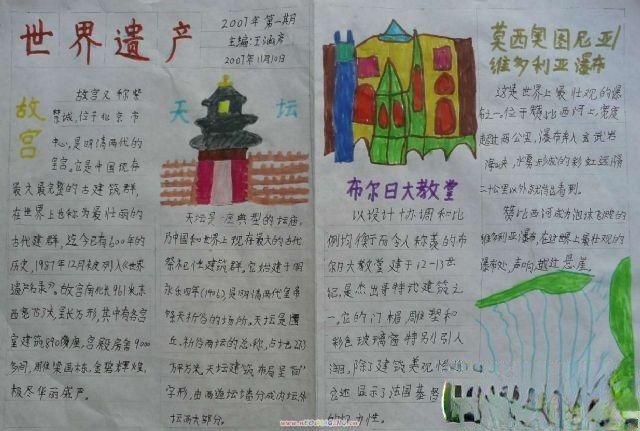 世界遗产
2007年第一期
主编:王涵彦
2007年11月10日
故宫
故宫又称紫
禁城,位于北京市
中心,是明清两代的
皇宫。它是中国现存
最大最完整的古建筑群,
在世界上也称为最壮丽的
古代建群,迄今已有600年的
历史,1987年12月列入《世界
遗产名录》。故宫南北长961米东
西宽753米,呈长方形,其中有各宫
室建筑890座,宫殿房舍9000
多间,雕梁画栋,金碧辉煌,
极尽华丽盛严。
天坛
天坛是一座典型的坛庙,
乃中国和世界上现存最大的古代
祭祀性建筑群。它始建于明
永乐四年(1406),是明清两代皇帝
祭天祈谷的场所。天坛是圜
丘、祈谷两坛的总称,占地273
万平方米。天坛建筑布局呈"回"
字形,由两道坛墙分成内坛外
坛两大部分。
布尔日大教堂
以设计协调和比
例均衡而令人称羡的布
尔日大教堂建于12-13世
纪,是杰出哥特式建筑之
一,它的门楣雕塑和
彩色玻璃窗特别引人
注目,除了建筑美观
显示了法国基督
莫西奥图尼亚/
维多利亚瀑布
这是世界上最壮观的瀑
布之一。位于赞比西河上,宽度
超过两公里,瀑布奔入玄武岩
海峡,水雾形成的彩虹远隔
二十公里以外就能看到。
赞比西河成为泡沫飞溅的
维多利亚瀑布,在这世界上最壮观的
瀑布处,声响越过悬崖。